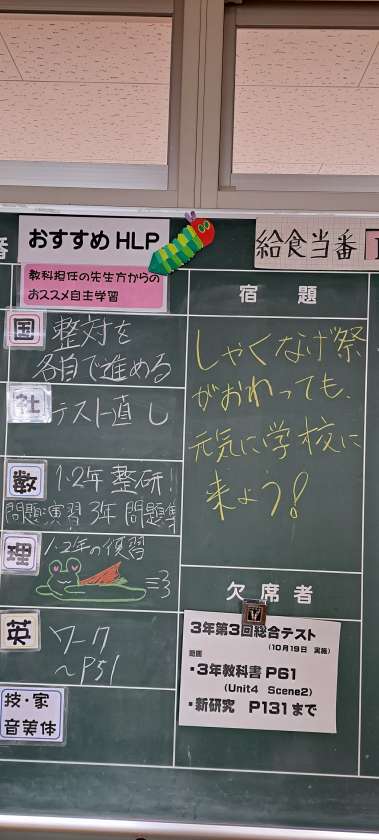 おすすめ HLP
教科担任の先生方からの
おススメ自主学習
国 整対を
各自で進める
社 テスト直し
数 1・2年 整研!
問題演習 3年 問題集
理 1・2年の復習
英 ワーク
~P51
技・家
音美体
給食当番
宿題
しゃくなげ祭
がおわっても、
元気に学校に
来よう!
欠席者
3年第3回総合テスト
(10月19日 実施)
範囲
・3年教科書 P61
(Unit4 Scene2)
・新研究 P131まで